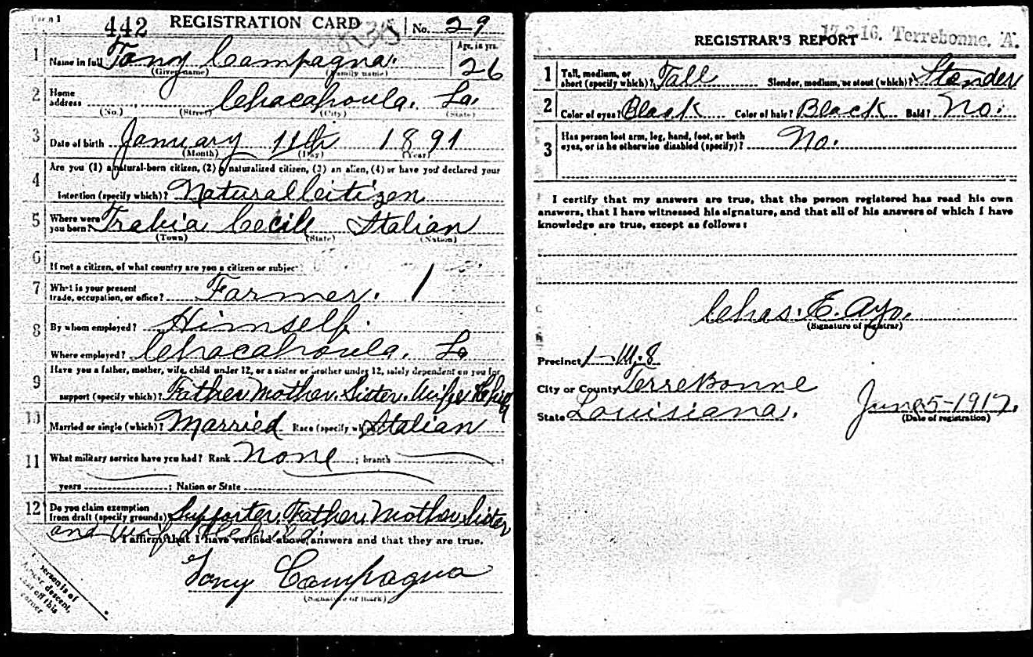 Form 1
442 REGISTRATION CARD No. 29
1 Name in full Tony Campagna Age, in yrs. 26
(Given name) (Family name)
2 Home address Chacahoula, La.
(No.) (Street) (City) (State)
3 Date of birth January 11th 1891
(Month) (Day) (Year)
Are you (1) a natural-born citizen, (2) a naturalized citizen, (3) an alien, (4) or have you declared your
4 intention (specify which)? Natural Citizen
5 Where were you born? Trabia Cecill Italian
(Town) (State) (Nation)
6 If not a citizen, of what country are you a citizen or subject
7 What is your present trade, occupation, or office? Farmer. 1
8 By whom employed? Himself.
Where employed? Chacahoula, La
9 Have you a father, mother, wife, child under 12, or a sister or brother under 12, solely dependent on you for
support (specify which)? Father, Mother, Sister, Wife
10 Married or single (which)? Married Race (specify which)? Italian
11 What military service have you had? Rank None ; branch
years ; Nation or State
12 Do you claim exemption from draft (specify grounds)? Supporter, Father, Mother, Sister
and Wife
I affirm that I have verified above answers and that they are true.
Tony Campagna
(Signature or mark)
person is of
descent,
off this
corner
17-2-16. Terrebonne, A.
REGISTRAR'S REPORT
1 Tall, medium, or short (specify which)? Tall Slender, medium, or stout (which)? Slender
2 Color of eyes? Black Color of hair? Black Bald? No.
3 Has person lost arm, leg, hand, foot, or both eyes, or is he otherwise disabled (specify)? No.
I certify that my answers are true, that the person registered has read his own
answers, that I have witnessed his signature, and that all of his answers of which I have
knowledge are true, except as follows:
Chas. E. Ayo.
(Signature of registrar)
Precinct 1- W. 8
City or County Terrebonne
State Louisiana. June 5-1917.
(Date of registration)